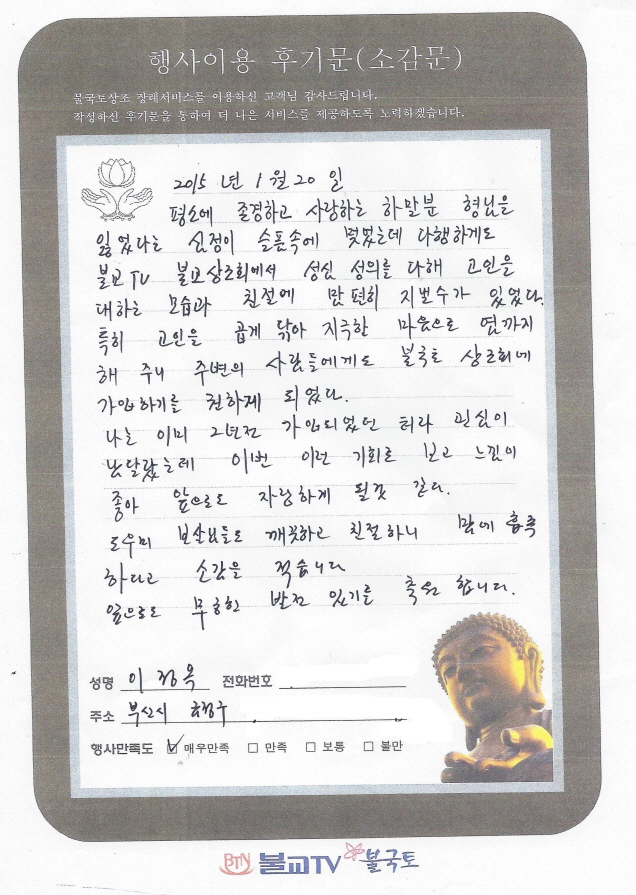 행사이용 후기문(소감문)
불국토상조 장례서비스를 이용하신 고객님 감사드립니다.
작성하신 후기문을 통하여 더 나은 서비스를 제공하도록 노력하겠습니다.
2015 년 1 월 20 일
평소에 존경하고 사랑하는 하 말분 형님을
잃었다는 심정이 슬픔속에 멎었는데 다행하게도
불교TV 불교상조회에서 성심 성의를 다해 고인을
대하는 모습과 친절에 맘 편히 지낼수가 있었다.
특히 고인을 곱게 닦아 지극한 마음으로 염까지
해 주니 주변의 사람들에게도 불국토 상조회에
가입하기를 권하게 되었다.
나는 이미 2년전 가입되었던 터라 관심이
남달랐는데 이번 이런 기회로 보고 느낌이
좋아 앞으로도 자랑하게 될것 같다.
도우미 보살님들도 깨끗하고 친절하니 맘에 흡족
하다고 소감을 적습니다
앞으로도 무궁한 발전 있기를 축원 합니다.
성명 이정옥 전화번호
주소 부산시
행사만족도 ☑ 매우만족 □ 만족 □ 보통 □ 불만
BTN 불교TV 불국토